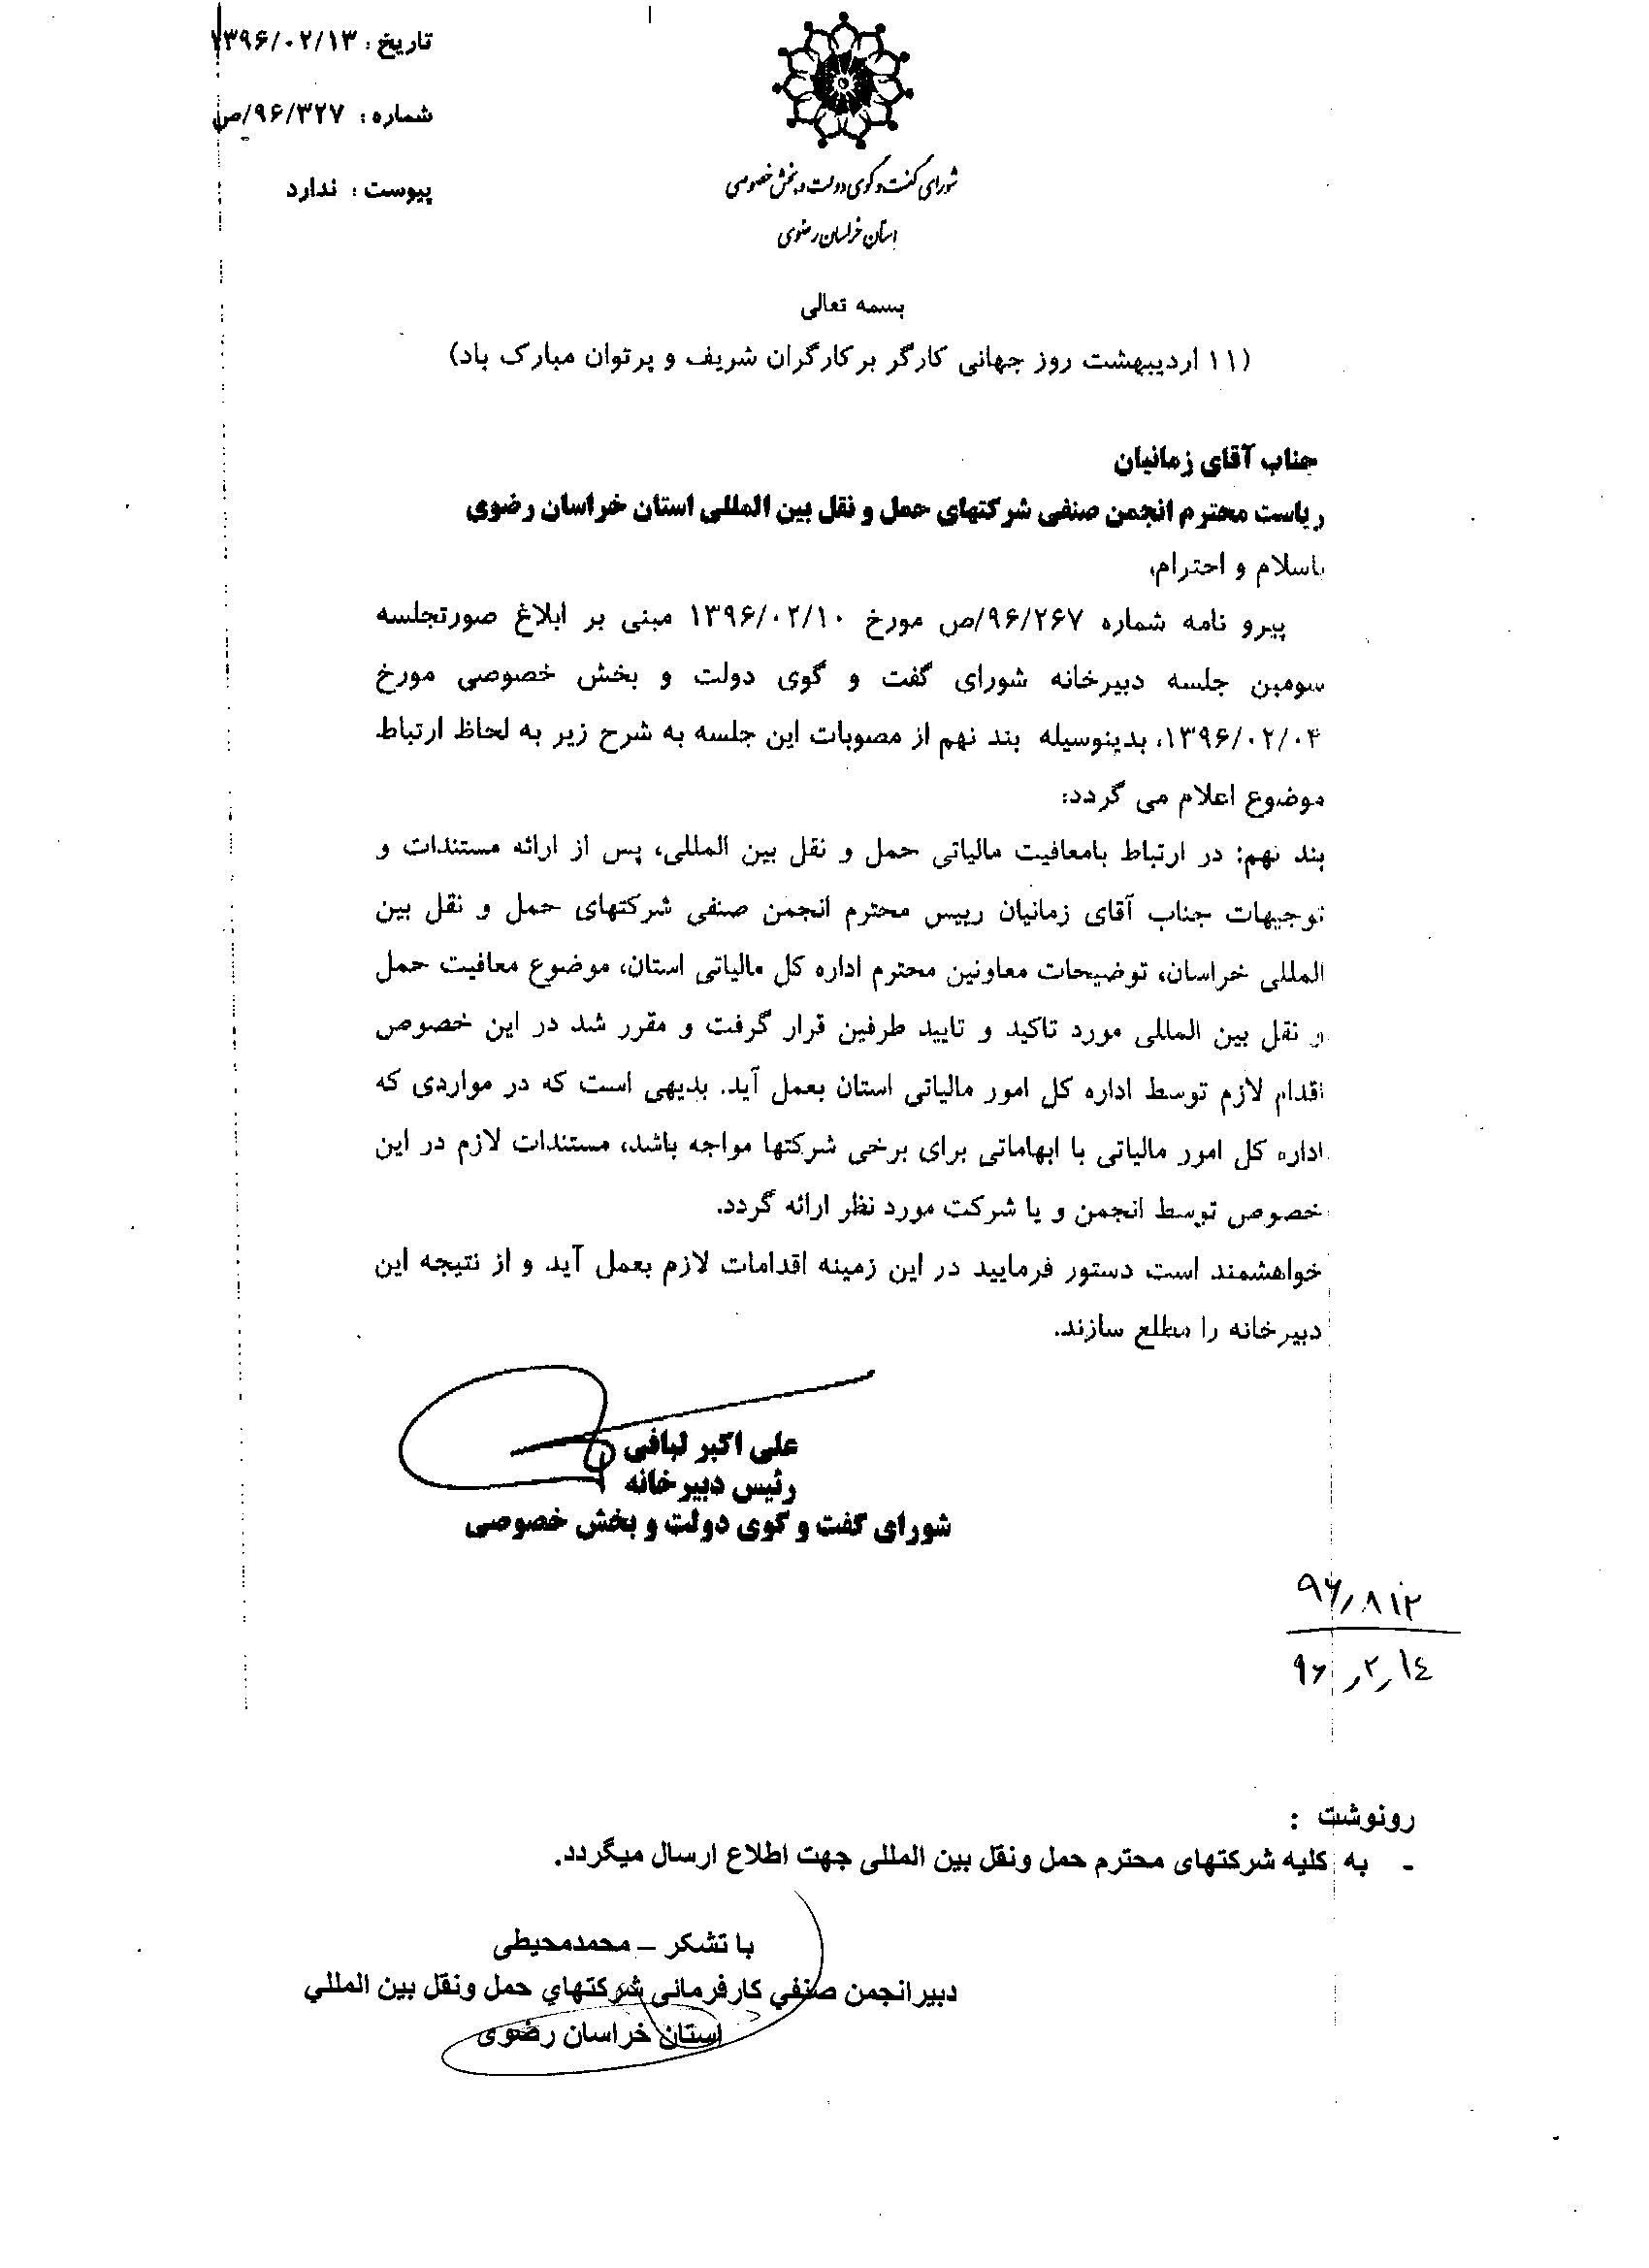 تاریخ : ۱۳۹۶/۰۲/۱۳
شماره : ۹۶/۳۲۷/ص
پیوست : ندارد
شورای گفت و گوی دولت و بخش خصوصی
استان خراسان رضوی
بسمه تعالی
(۱۱ اردیبهشت روز جهانی کارگر بر کارگران شریف و پرتوان مبارک باد)
جناب آقای زمانیان
ریاست محترم انجمن صنفی شرکتهای حمل و نقل بین المللی استان خراسان رضوی
باسلام و احترام،
پیرو نامه شماره ۹۶/۲۶۷/ص مورخ ۱۳۹۶/۰۲/۱۰ مبنی بر ابلاغ صورتجلسه
سومین جلسه دبیرخانه شورای گفت و گوی دولت و بخش خصوصی مورخ
۱۳۹۶/۰۲/۰۴، بدینوسیله بند نهم از مصوبات این جلسه به شرح زیر به لحاظ ارتباط
موضوع اعلام می گردد:
بند نهم: در ارتباط بامعافیت مالیاتی حمل و نقل بین المللی، پس از ارائه مستندات و
توجیهات جناب آقای زمانیان رییس محترم انجمن صنفی شرکتهای حمل و نقل بین
المللی خراسان، توضیحات معاونین محترم اداره کل مالیاتی استان، موضوع معافیت حمل
و نقل بین المللی مورد تاکید و تایید طرفین قرار گرفت و مقرر شد در این خصوص
اقدام لازم توسط اداره کل امور مالیاتی استان بعمل آید. بدیهی است که در مواردی که
اداره کل امور مالیاتی با ابهاماتی برای برخی شرکتها مواجه باشد، مستندات لازم در این
خصوص توسط انجمن و یا شرکت مورد نظر ارائه گردد.
خواهشمند است دستور فرمایید در این زمینه اقدامات لازم بعمل آید و از نتیجه این
دبیرخانه را مطلع سازند.
علی اکبر لبافی
رئیس دبیرخانه
شورای گفت و گوی دولت و بخش خصوصی
۹۶٫۸۱۲
۹۶٫۲٫۱٤
رونوشت :
- به کلیه شرکتهای محترم حمل ونقل بین المللی جهت اطلاع ارسال میگردد.
با تشکر – محمدمحیطی
دبیرانجمن صنفي کارفرمائی شرکتهاي حمل ونقل بین المللي
استان خراسان رضوی